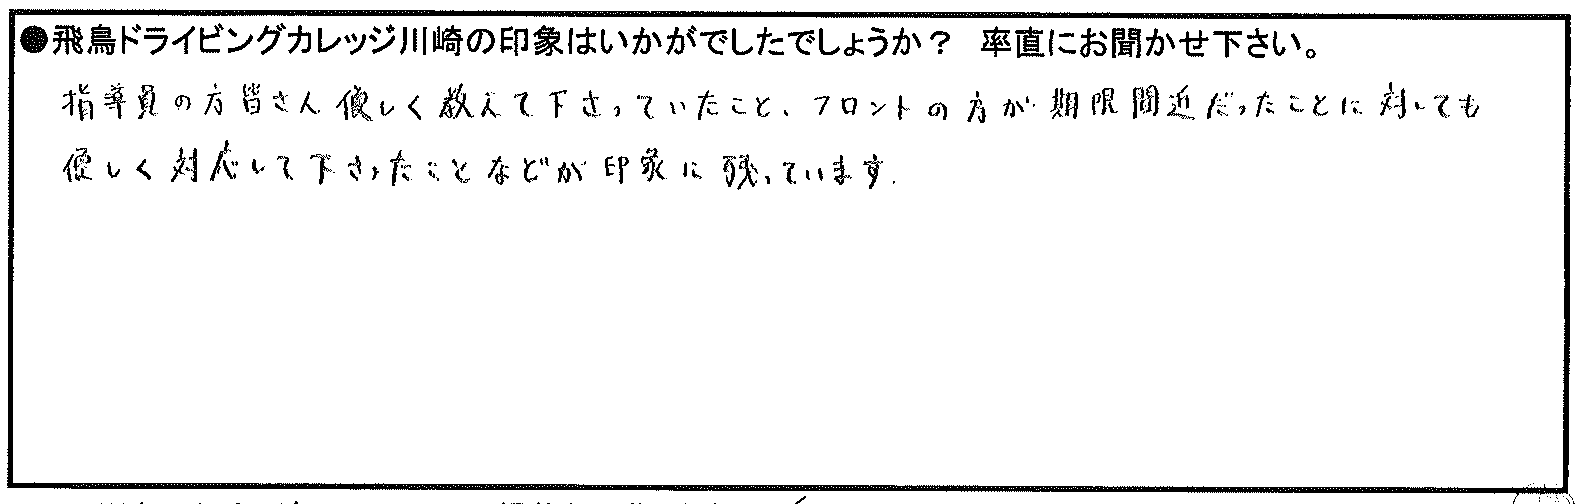 ●飛鳥ドライビングカレッジ川崎の印象はいかがでしたでしょうか？　率直にお聞かせ下さい。
指導員の方皆さん優しく教えて下さっていたこと、フロントの方が期限間近だったことに対しても
優しく対応して下さったことなどが印象に残っています.